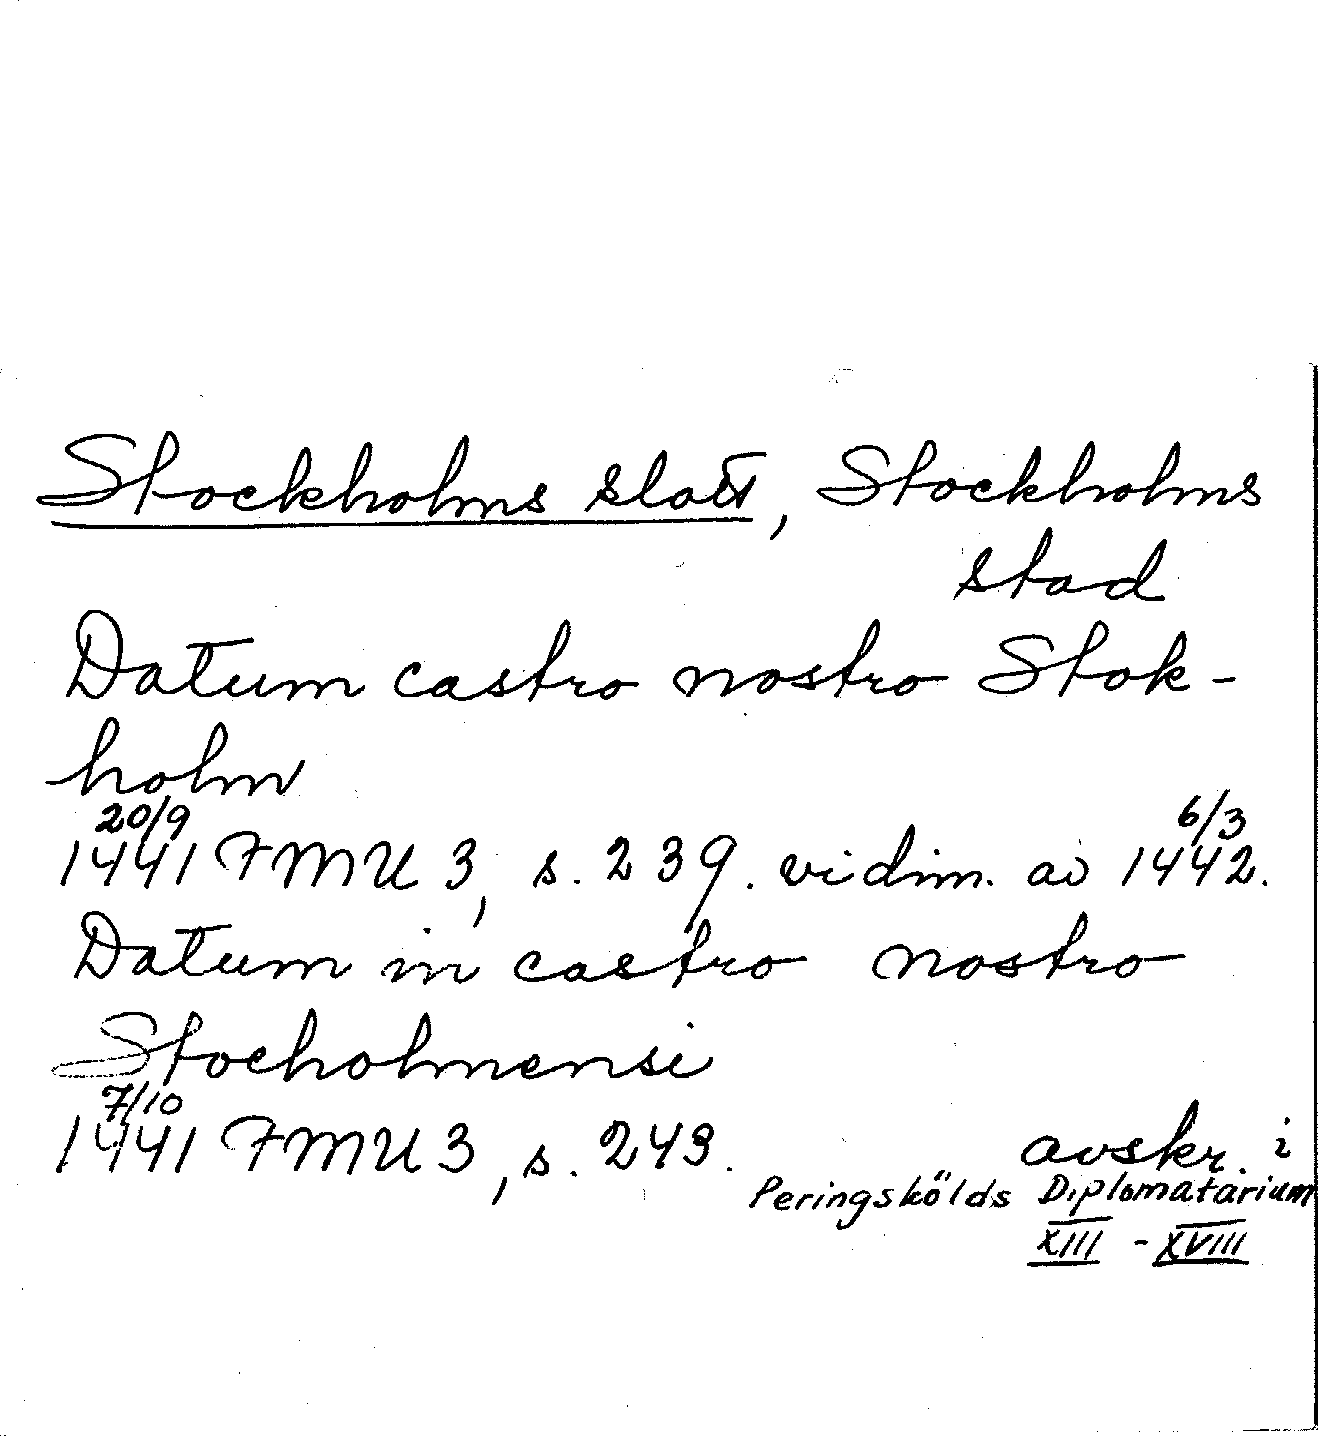 Stockholms slott, Stockholms
stad
Datum castro nostro Stok-
holm
20/9
1441 FMU 3, s. 239. vidim. av 1442. 6/3
Datum in castro nostro
Stocholmensi
7/10
1441 FMU 3, s. 243. avskr. i
Peringskölds Diplomatarium
XIII - XVIII